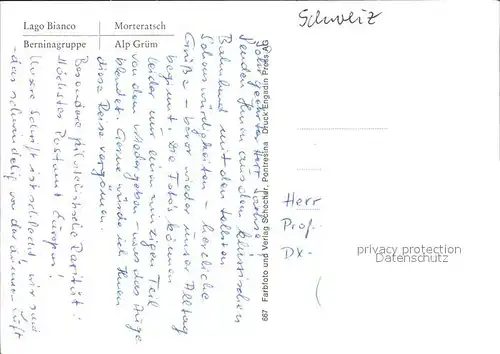 Lago Bianco
Morteratsch
Berninagruppe
Alp Grüm
Schweiz
Sehr geehrter Herr
senden Ihnen aus dem klassischen
Bahnland mit den tollsten
Sehenswürdigkeiten - herzliche
Grüße - bevor wieder unser Alltag
beginnt. Die Foto's können
leider nur einen winzigen Teil
von dem wiedergeben - was das Auge
blendet. Gerne würde ich Ihnen
diese Reise vergönnen.
Besondere philatelistische Rarität:
Höchstes Postamt Europas!
Unsere Schrift ist schlecht, wir sind
das schwindelig von der dünnen Luft
667 Farbfoto und Verlag Schocher, Pontresina Druck Engadin Press AG
Herr
Prof.
DX-
privacy protection
Datenschutz